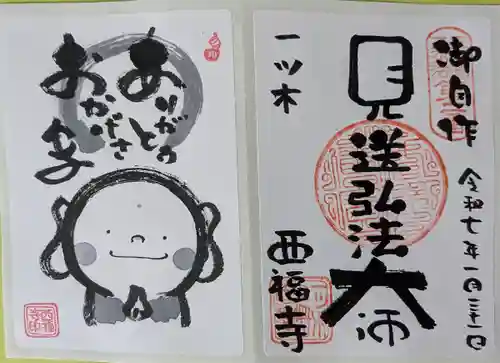 御自作
見送弘法大師
一ツ木
西福寺
令和七年一月三十一日
ありがとの
おかげさ